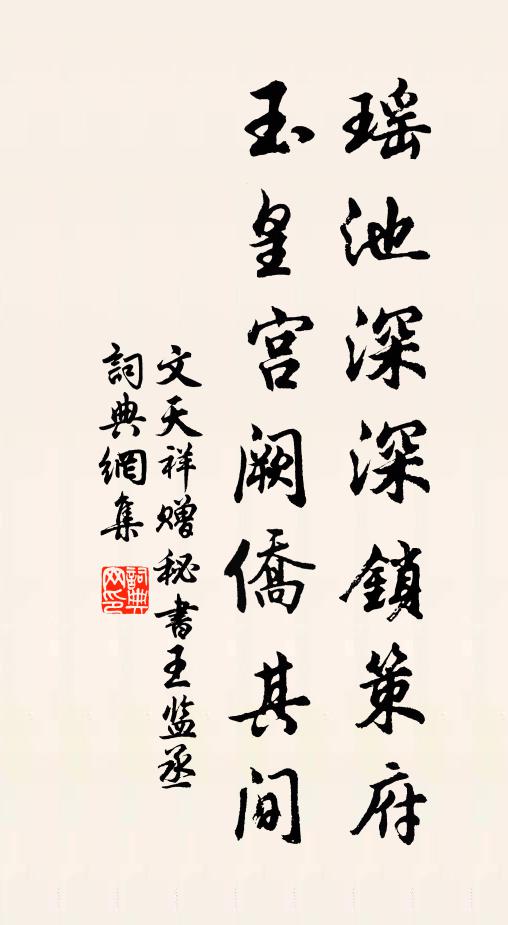 瑶池深深鎖策府
玉皇宫阙僑其间
文天祥赠秘書王监丞
詞典網集
詞典網印